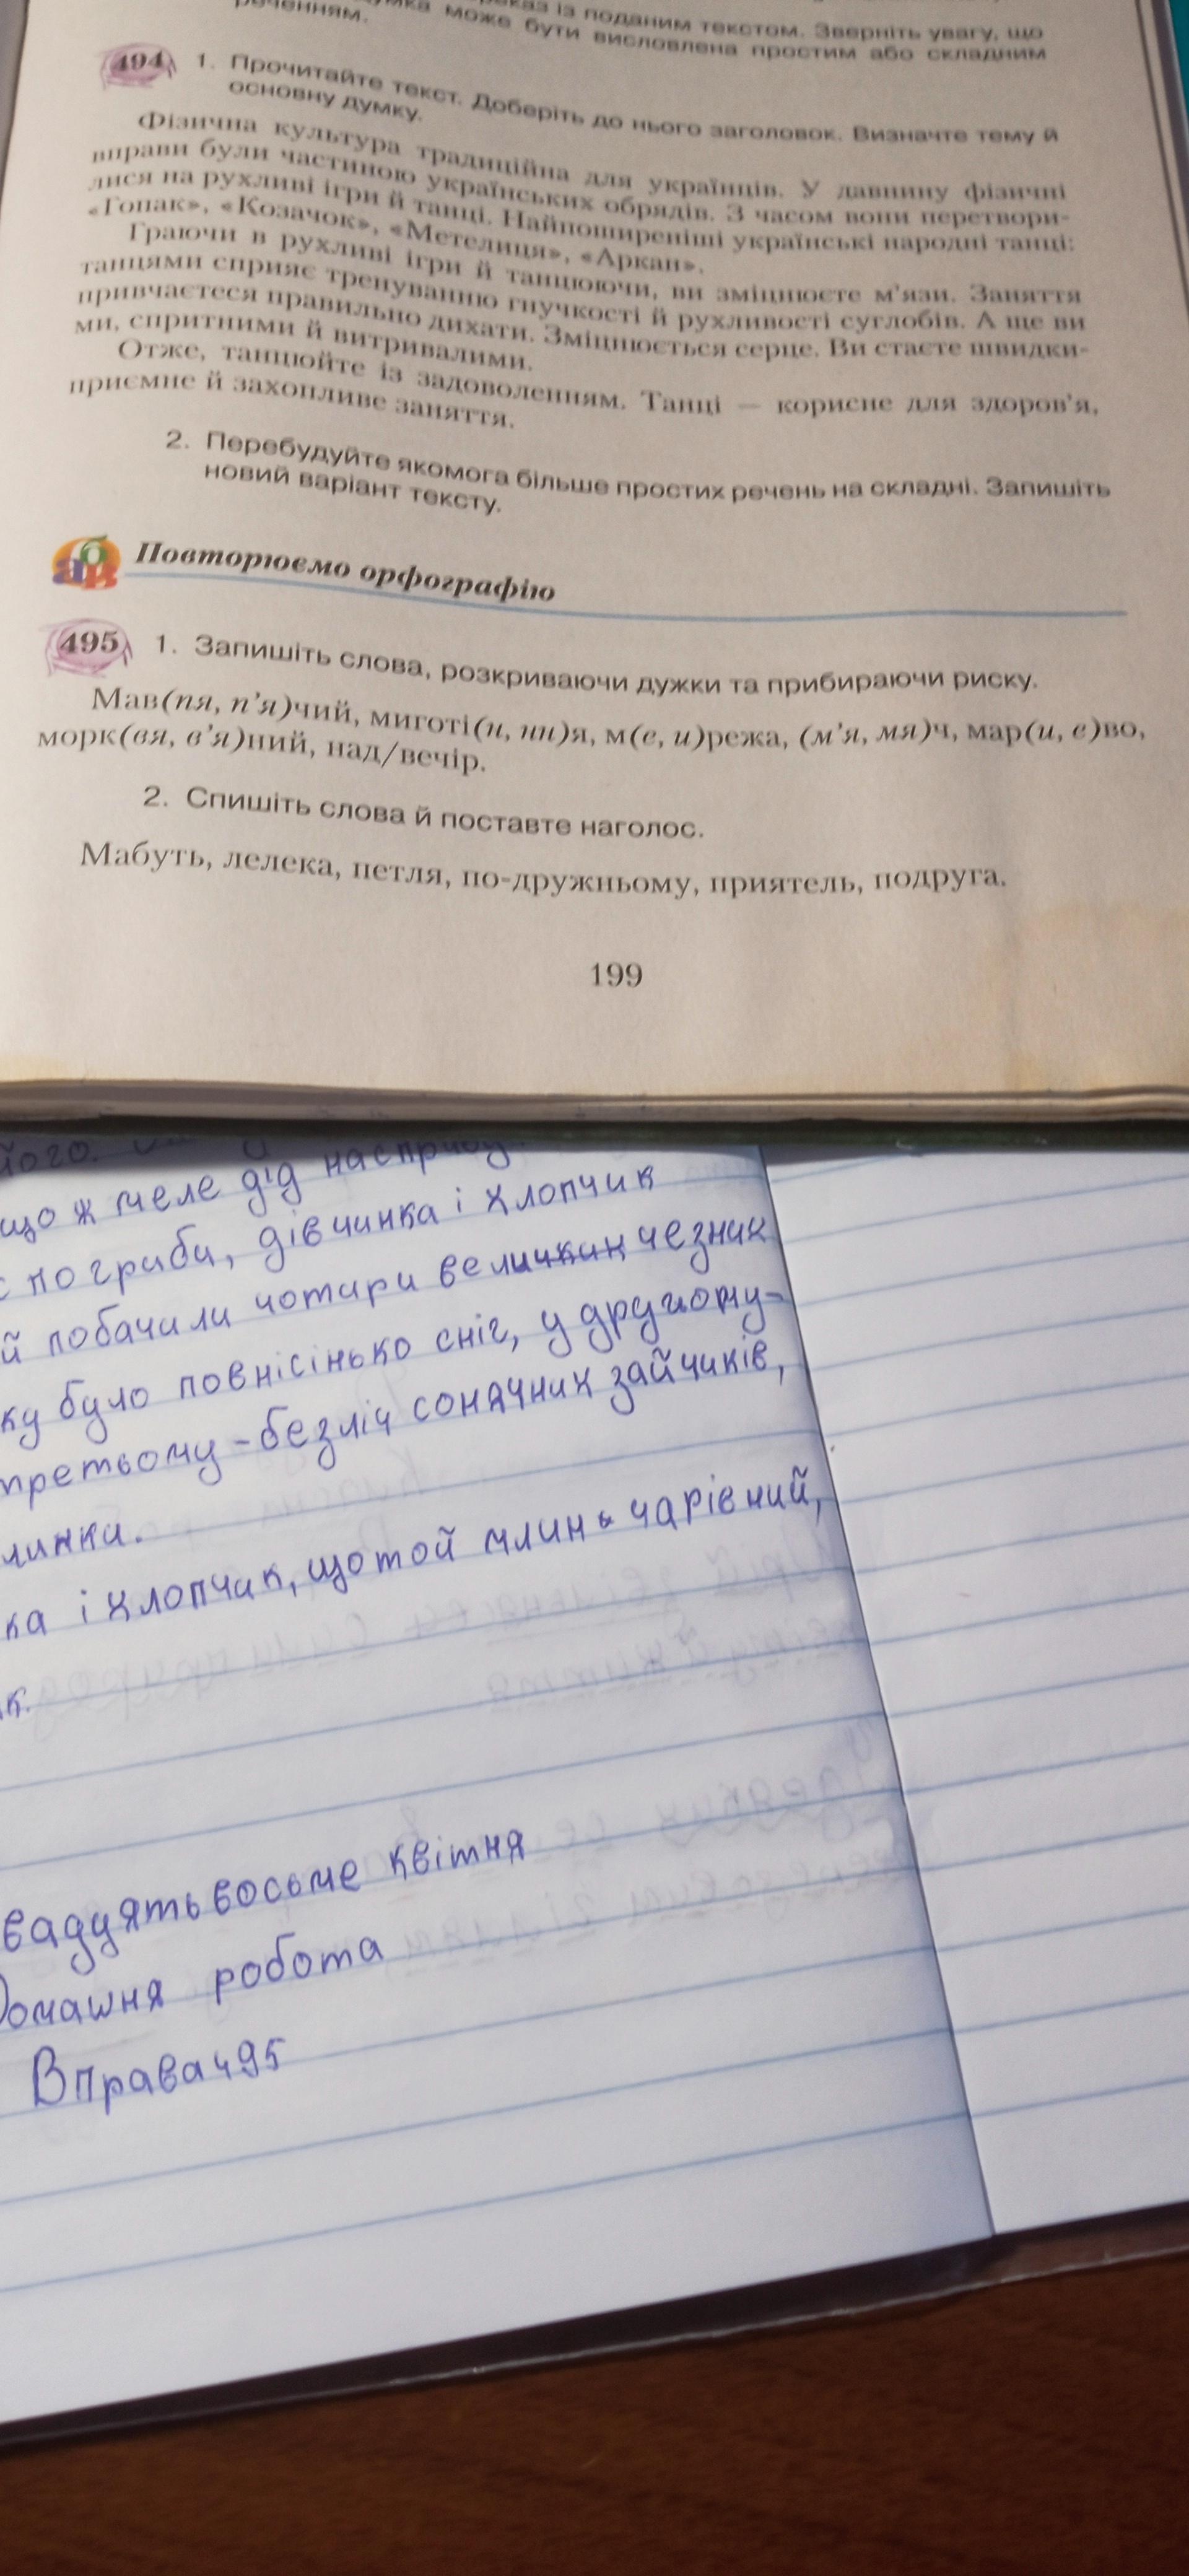 каз із поданим текстом. Зверніть увагу, що
може бути висловлена простим або складним
реченням.
494 1. Прочитайте текст. Доберіть до нього заголовок. Визначте тему й
основну думку.
Фізична культура традиційна для українців. У давнину фізичні
вправи були частиною українських обрядів. З часом вони перетвори-
лися на рухливі ігри й танці. Найпоширеніші українські народні танці:
«Гопак», «Козачок», «Метелиця», «Аркан».
Граючи в рухливі ігри й танцюючи, ви зміцнюєте м'язи. Заняття
танцями сприяє тренуванню гнучкості й рухливості суглобів. А ще ви
привчаєтеся правильно дихати. Зміцнюється серце. Ви стаєте швидки-
ми, спритними й витривалими.
Отже, танцюйте із задоволенням. Танці — корисне для здоров'я,
приємне й захопливе заняття.
2. Перебудуйте якомога більше простих речень на складні. Запишіть
новий варіант тексту.
абв Повторюємо орфографію
495 1. Запишіть слова, розкриваючи дужки та прибираючи риску.
Мав(пя, п'я)чий, миготі(н, нн)я, м(е, и)режа, (м'я, мя)ч, мар(и, е)во,
морк(вя, в'я)ний, над/вечір.
2. Спишіть слова й поставте наголос.
Мабуть, лелека, петля, по-дружньому, приятель, подруга.
199
його.
що ж меле дід насправді
по гриби, дівчинка і хлопчик
й побачили чотири
ку було повнісінько сніг, у другому-
третьому - безліч сонячних зайчиків,
линки.
ка і хлопчик, що той млин чарівний,
к.
вадцять восьме квітня
Домашня робота
Вправа 495